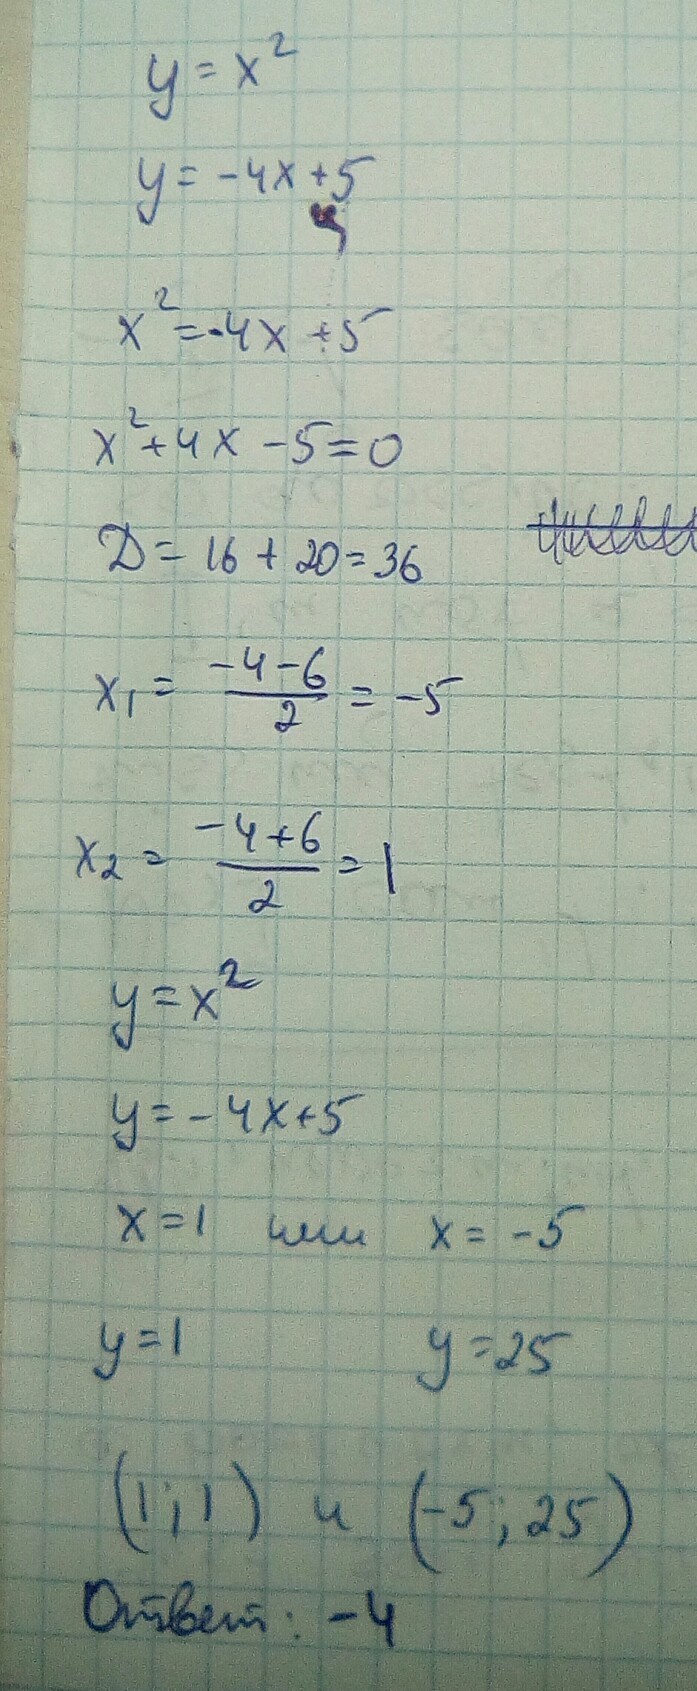 y = x²
y = -4x +5
x² = -4x +5
x² + 4x - 5 = 0
D = 16 + 20 = 36
x₁ = (-4-6)/2 = -5
x₂ = (-4+6)/2 = 1
y = x²
y = -4x+5
x = 1 или x = -5
y = 1 y = 25
(1; 1) и (-5; 25)
Ответ: -4